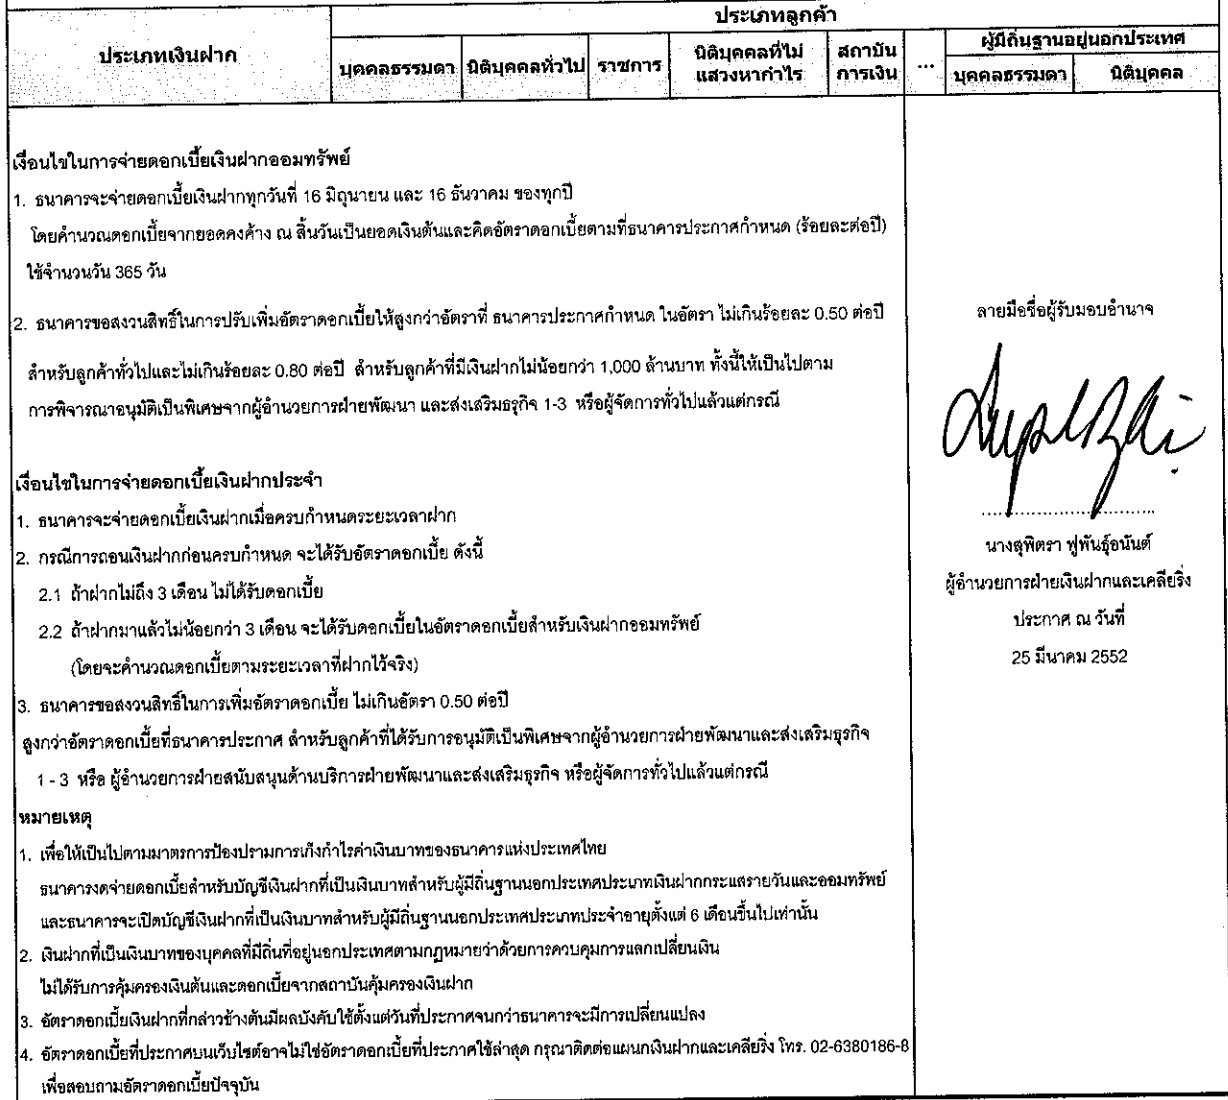 ประเภทเงินฝาก
ประเภทลูกค้า
บุคคลธรรมดา
นิติบุคคลทั่วไป
ราชการ
นิติบุคคลที่ไม่
แสวงหากำไร
สถาบัน
การเงิน
...
ผู้มีถิ่นฐานอยู่นอกประเทศ
บุคคลธรรมดา
นิติบุคคล
เงื่อนไขในการจ่ายดอกเบี้ยเงินฝากออมทรัพย์
1. ธนาคารจะจ่ายดอกเบี้ยเงินฝากทุกวันที่ 16 มิถุนายน และ 16 ธันวาคม ของทุกปี
โดยคำนวณดอกเบี้ยจากยอดคงค้าง ณ สิ้นวันเป็นยอดเงินต้นและคิดอัตราดอกเบี้ยตามที่ธนาคารประกาศกำหนด (ร้อยละต่อปี)
ใช้จำนวนวัน 365 วัน
2. ธนาคารขอสงวนสิทธิ์ในการปรับเพิ่มอัตราดอกเบี้ยให้สูงกว่าอัตราที่ ธนาคารประกาศกำหนด ในอัตรา ไม่เกินร้อยละ 0.50 ต่อปี
สำหรับลูกค้าทั่วไปและไม่เกินร้อยละ 0.80 ต่อปี สำหรับลูกค้าที่มีเงินฝากไม่น้อยกว่า 1,000 ล้านบาท ทั้งนี้ให้เป็นไปตาม
การพิจารณาอนุมัติเป็นพิเศษจากผู้อำนวยการฝ่ายพัฒนา และส่งเสริมธรุกิจ 1-3 หรือผู้จัดการทั่วไปแล้วแต่กรณี
เงื่อนไขในการจ่ายดอกเบี้ยเงินฝากประจำ
1. ธนาคารจะจ่ายดอกเบี้ยเงินฝากเมื่อครบกำหนดระยะเวลาฝาก
2. กรณีการถอนเงินฝากก่อนครบกำหนด จะได้รับอัตราดอกเบี้ย ดังนี้
2.1 ถ้าฝากไม่ถึง 3 เดือน ไม่ได้รับดอกเบี้ย
2.2 ถ้าฝากมาแล้วไม่น้อยกว่า 3 เดือน จะได้รับดอกเบี้ยในอัตราดอกเบี้ยสำหรับเงินฝากออมทรัพย์
(โดยจะคำนวณดอกเบี้ยตามระยะเวลาที่ฝากไว้จริง)
3. ธนาคารขอสงวนสิทธิ์ในการเพิ่มอัตราดอกเบี้ย ไม่เกินอัตรา 0.50 ต่อปี
สูงกว่าอัตราดอกเบี้ยที่ธนาคารประกาศ สำหรับลูกค้าที่ได้รับการอนุมัติเป็นพิเศษจากผู้อำนวยการฝ่ายพัฒนาและส่งเสริมธุรกิจ
1 - 3 หรือ ผู้อำนวยการฝ่ายสนับสนุนด้านบริการฝ่ายพัฒนาและส่งเสริมธุรกิจ หรือผู้จัดการทั่วไปแล้วแต่กรณี
หมายเหตุ
1. เพื่อให้เป็นไปตามมาตรการป้องปรามการเก็งกำไรค่าเงินบาทของธนาคารแห่งประเทศไทย
ธนาคารงดจ่ายดอกเบี้ยสำหรับบัญชีเงินฝากที่เป็นเงินบาทสำหรับผู้มีถิ่นฐานนอกประเทศประเภทเงินฝากกระแสรายวันและออมทรัพย์
และธนาคารจะเปิดบัญชีเงินฝากที่เป็นเงินบาทสำหรับผู้มีถิ่นฐานนอกประเทศประเภทประจำอายุตั้งแต่ 6 เดือนขึ้นไปเท่านั้น
2. เงินฝากที่เป็นเงินบาทของบุคคลที่มีถิ่นที่อยู่นอกประเทศตามกฎหมายว่าด้วยการควบคุมการแลกเปลี่ยนเงิน
ไม่ได้รับการคุ้มครองเงินต้นและดอกเบี้ยจากสถาบันคุ้มครองเงินฝาก
3. อัตราดอกเบี้ยเงินฝากที่กล่าวข้างต้นมีผลบังคับใช้ตั้งแต่วันที่ประกาศจนกว่าธนาคารจะมีการเปลี่ยนแปลง
4. อัตราดอกเบี้ยที่ประกาศบนเว็บไซต์อาจไม่ใช่อัตราดอกเบี้ยที่ประกาศใช้ล่าสุด กรุณาติดต่อแผนกเงินฝากและเคลียริ่ง โทร. 02-6380186-8
เพื่อสอบถามอัตราดอกเบี้ยปัจจุบัน
ลายมือชื่อผู้รับมอบอำนาจ
นางสุพิตรา ฟูพันธุ์อนันต์
ผู้อำนวยการฝ่ายเงินฝากและเคลียริ่ง
ประกาศ ณ วันที่
25 มีนาคม 2552